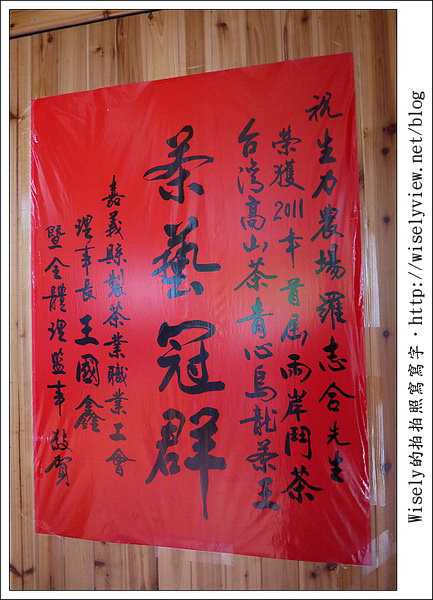 祝生力農場羅志合先生
榮獲2011年首屆兩岸鬥茶
台灣高山茶青心烏龍茶王
茶藝冠群
嘉義縣製茶業職業工會
理事長王國鑫
暨全體理監事敬賀
Wisely的拍拍照寫寫字・http://wiselyview.net/blog